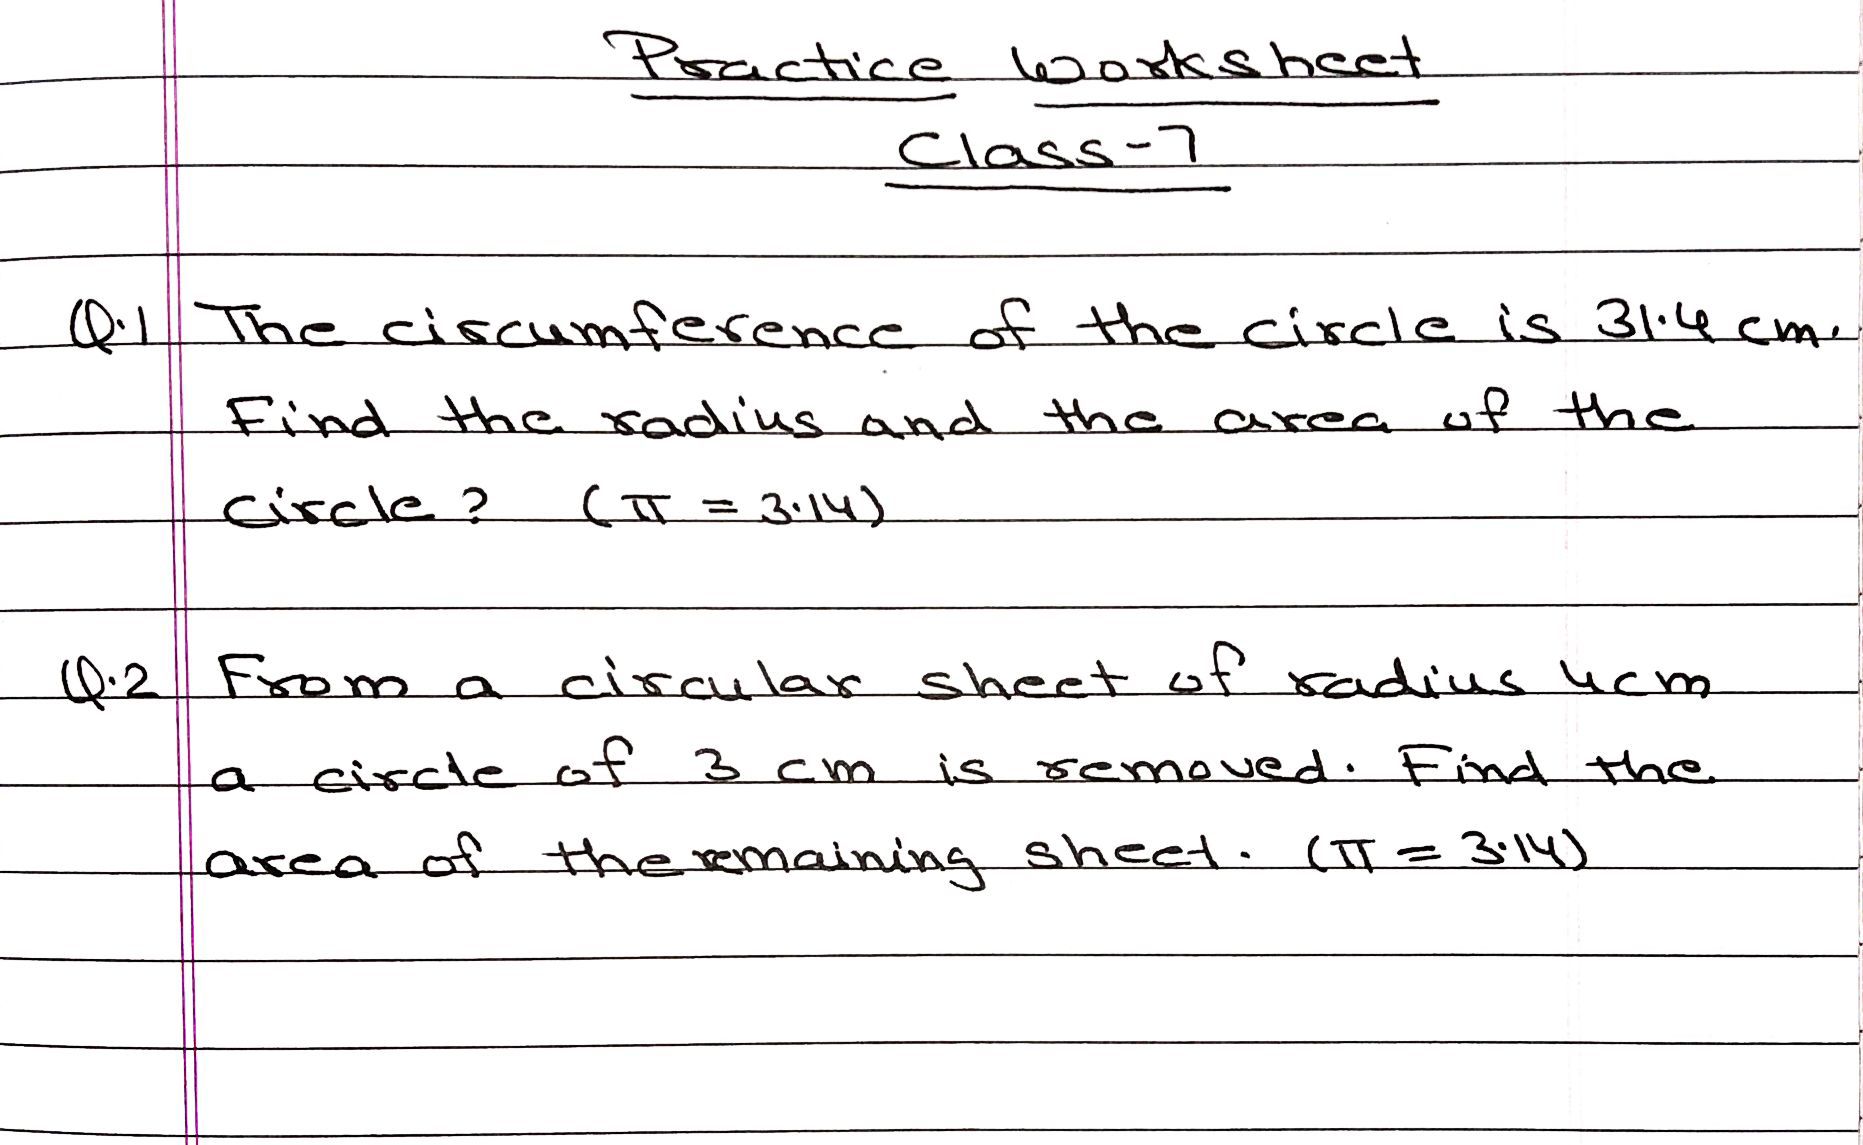 Practice Worksheet
Class-7
Q.1 The circumference of the circle is 31.4 cm.
Find the radius and the area of the
circle? (π = 3.14)
Q.2 From a circular sheet of radius 4cm
a circle of 3 cm is removed. Find the
area of the remaining sheet. (π = 3.14)